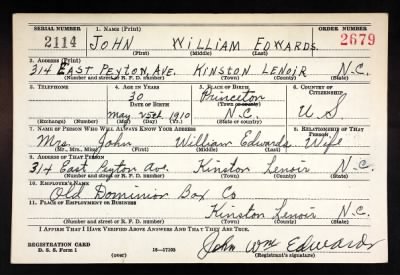 SERIAL NUMBER 1. NAME (Print) ORDER NUMBER
2114 JOHN WILLIAM EDWARDS 2679
(First) (Middle) (Last)
2. ADDRESS (Print)
314 EAST PEYTON AVE. KINSTON LENOIR N.C.
(Number and street or R. F. D. number) (Town) (County) (State)
3. TELEPHONE 4. AGE IN YEARS 5. PLACE OF BIRTH 6. COUNTRY OF CITIZENSHIP
30 Princeton
DATE OF BIRTH (Town or county)
May 25th 1910 N.C. U S
(Exchange) (Number) (Mo.) (Day) (Yr.) (State or country)
7. NAME OF PERSON WHO WILL ALWAYS KNOW YOUR ADDRESS 8. RELATIONSHIP OF THAT PERSON
Mrs. John William Edwards Wife
(Mr., Mrs., Miss) (First) (Middle) (Last)
9. ADDRESS OF THAT PERSON
314 East Peyton Ave. Kinston Lenoir N.C.
(Number and street or R. F. D. number) (Town) (County) (State)
10. EMPLOYER'S NAME
Old Dominion Box Co
11. PLACE OF EMPLOYMENT OR BUSINESS
Kinston Lenoir N.C.
(Number and street or R. F. D. number) (Town) (County) (State)
I AFFIRM THAT I HAVE VERIFIED ABOVE ANSWERS AND THAT THEY ARE TRUE.
REGISTRATION CARD
D. S. S. Form 1 16—17105 John Wm Edwards
(over) (Registrant's signature)